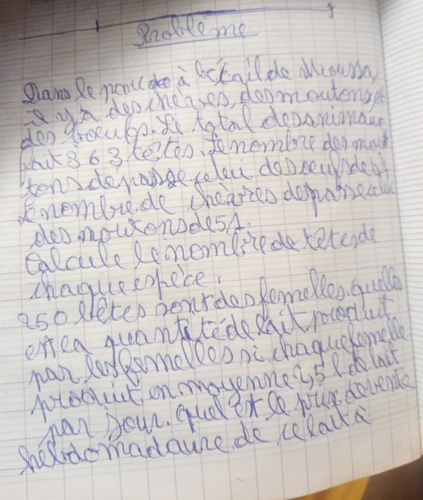 Problème
Dans le parc de à bétail de Moussa,
il y a des chèvres, des moutons et
des boeufs. Le total des animaux
fait 363 têtes. Le nombre des mou
tons depasse celui des oeufs de
le nombre de chèvres depasse celui
des moutons de 51.
Calcule le nombre de têtes de
chaque espèce.
250 bêtes sont des femelles. quelles
est la quantité de lait produit
par les femelles si chaque femelle
produit en moyenne 2,5 l de lait
par jour. quel est le prix de vente
hebdomadaire de ce lait à